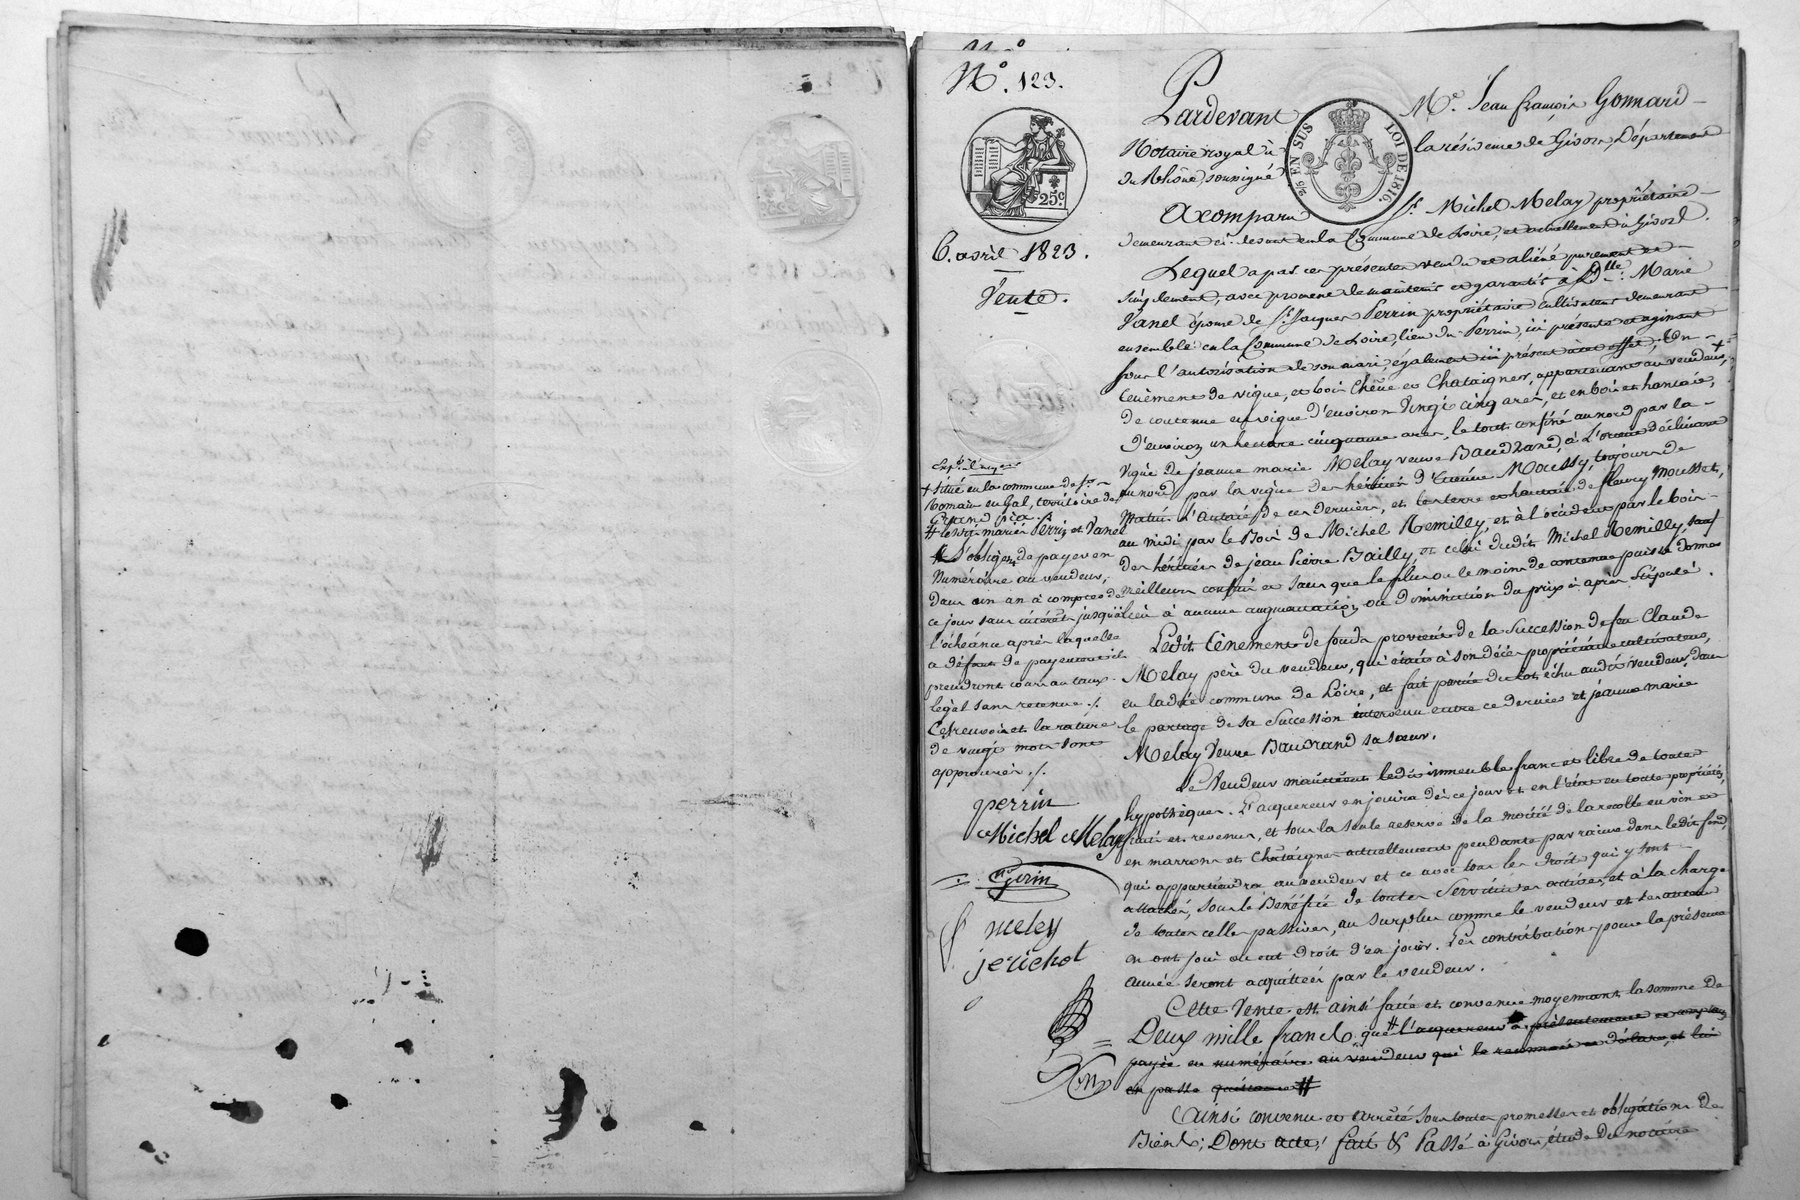 N.° 123.
25c
6. avril 1823.
Vente.
Pardevant Me. Jean françois Gonnard
EN SUS LOI DE 1816.
Notaire royal à la résidence de Givors, Département
du Rhône, soussigné
A comparu Sr. Michel Melay propriétaire
demeurant ci-devant en la Commune de Loire, et actuellement à Givors.
Lequel a par ces présentes vendu et aliéné purement et
simplement, avec promesse de maintenir et garantir à Dlle. Marie
Vanel épouse de Sr. Jacques Perrin propriétaire cultivateur demeurant
ensemble en la Commune de Loire, lieu du Perrin, ici présente et agissant
sous l'autorisation de son mari, également ici présent à cet effet, Un
tènement de vigne, et bois Chêne et Chataigner, appartenant au vendeur, +
de contenue en vigne d'environ Vingt cinq ares, et en bois et hautais,
d'environ un hectare cinquante ares, le tout confiné au nord par la
vigne de jeanne marie Melay veuve Baudrand, à L'orient déclinant
au nord par la vigne des héritiers d'Etienne Moussy, toujours de
matin d'Autarès de ces derniers, et les terre et hautais de fleury Mousset,
au midi par le Bois de Michel Remilly, et à l'occident par le bois
des héritiers de jean Pierre Bailly, et celui dudit Michel Remilly, sauf
meilleurs confins et sans que le plus ou le moins de contenue puisse donner
lieu à aucune augmentation ou diminution du prix ci après stipulé.
Ledit tènement de fonds provient de la succession de feu Claude
Melay père du vendeur, qui était à son décès propriétaire cultivateur,
en ladite commune de Loire, et fait partie du lot échu audit vendeur, dans
le partage de sa succession intervenu entre ce dernier et jeanne marie
Melay Veuve Baudrand sa sœur.
Le Vendeur maintient ledit immeuble franc et libre de toute
hypothèques. L'acquereur en jouira dès ce jour et en l'état en toute propriété,
fruits et revenus, et sous la seule reserve de la moitié de la recolte en vin et
en marrons et Chataignes actuellement pendante par racine dans ledit fond,
qui appartiendra au vendeur et ce avec tous les droits qui y sont
attachés, sous le Bénéfice de toutes servitudes actives, et à la charge
de toutes celles passives, au surplus comme le vendeur et ses auteurs
en ont joui ou eut droit d'en jouir. Les contributions pour la présente
année seront acquittées par le vendeur.
Cette Vente est ainsi faite et convenue moyennant la somme de
Deux mille francs, que # l'acquereur a présentement et comptant
payée en numéraire au vendeur qui le reconnait et déclare, et lui
en passe quittance #
Ainsi convenu et arrêté sous toutes promesses et obligations de
Biens; Dont acte; fait & Passé à Givors, étude du notaire
+ situé en la commune de St.
Romain en Gal, territoire de
# lesdits mariés Perrin et Vanel
S'obligent de payer en
Numéraire au vendeur,
Dans un an à compter de
ce jour sans intérêt jusqu'à
l'échéance après laquelle
a défaut de payement ils
prendront cours au taux
légal sans retenue ./.
Ces renvois et la rature
de vingt mots sont
approuvés ./.
perrin
Michel Melay
Gerin
meley
jerichot